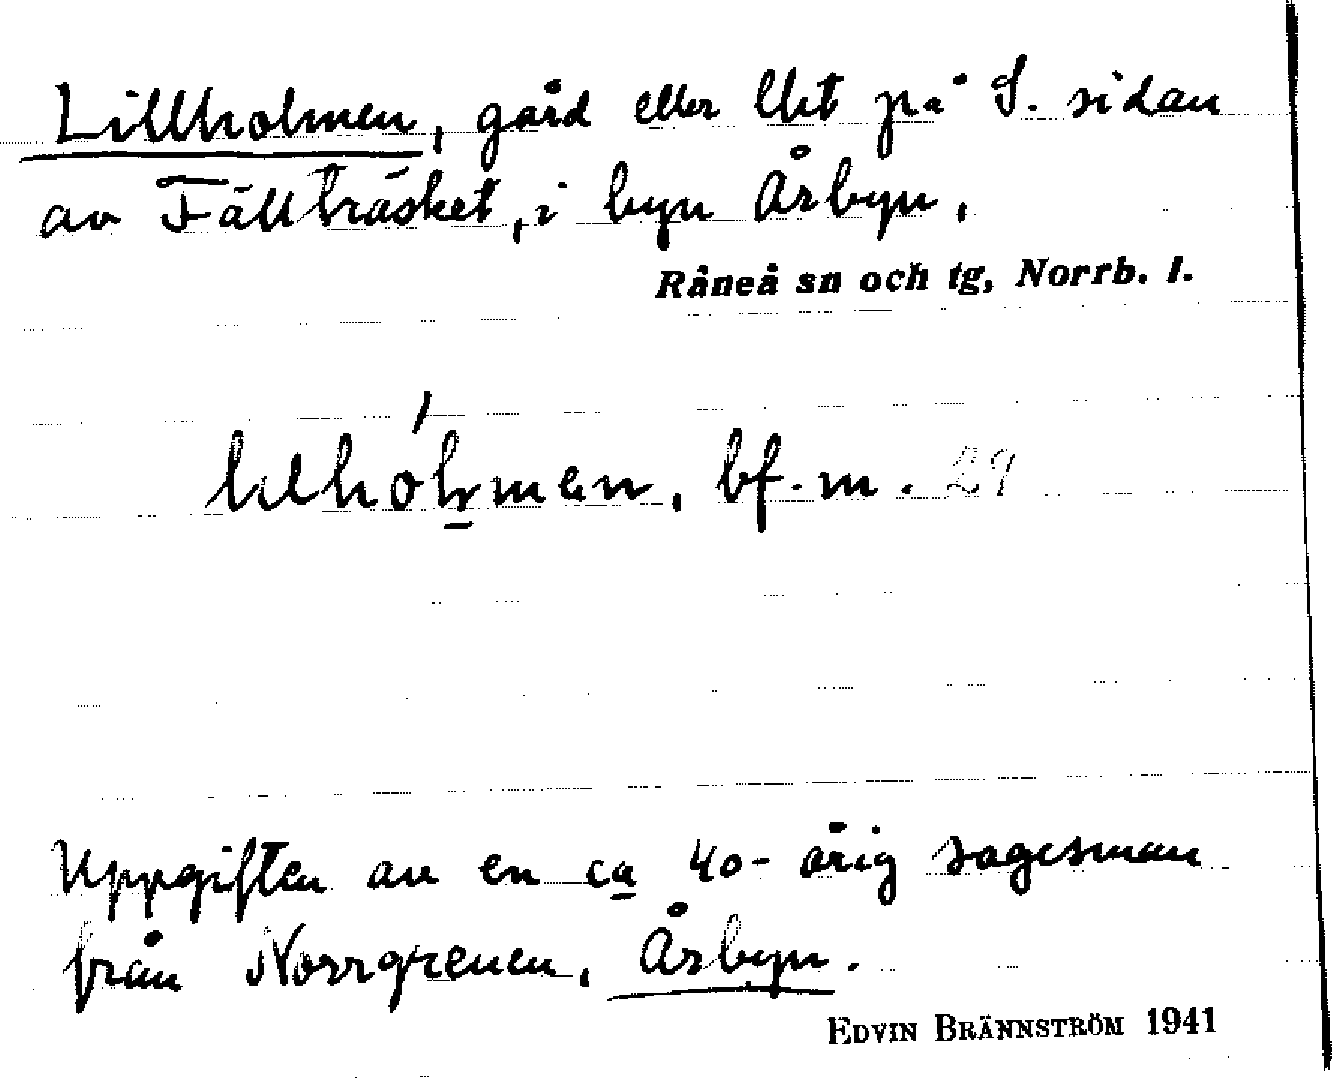 Lillholmen, gård eller lht på S. sidan
av Fällträsket, i byn Årbyn.
Råneå sn och tg, Norrb. l.
bf. m. 29
Uppgiften av en ca 40-årig sagesman
från Norrgrenen, Årbyn.
EDVIN BRÄNNSTRÖM 1941